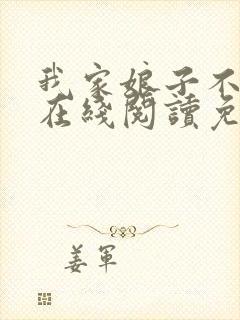 我家娘子不
在綫閱讀免
姜軍